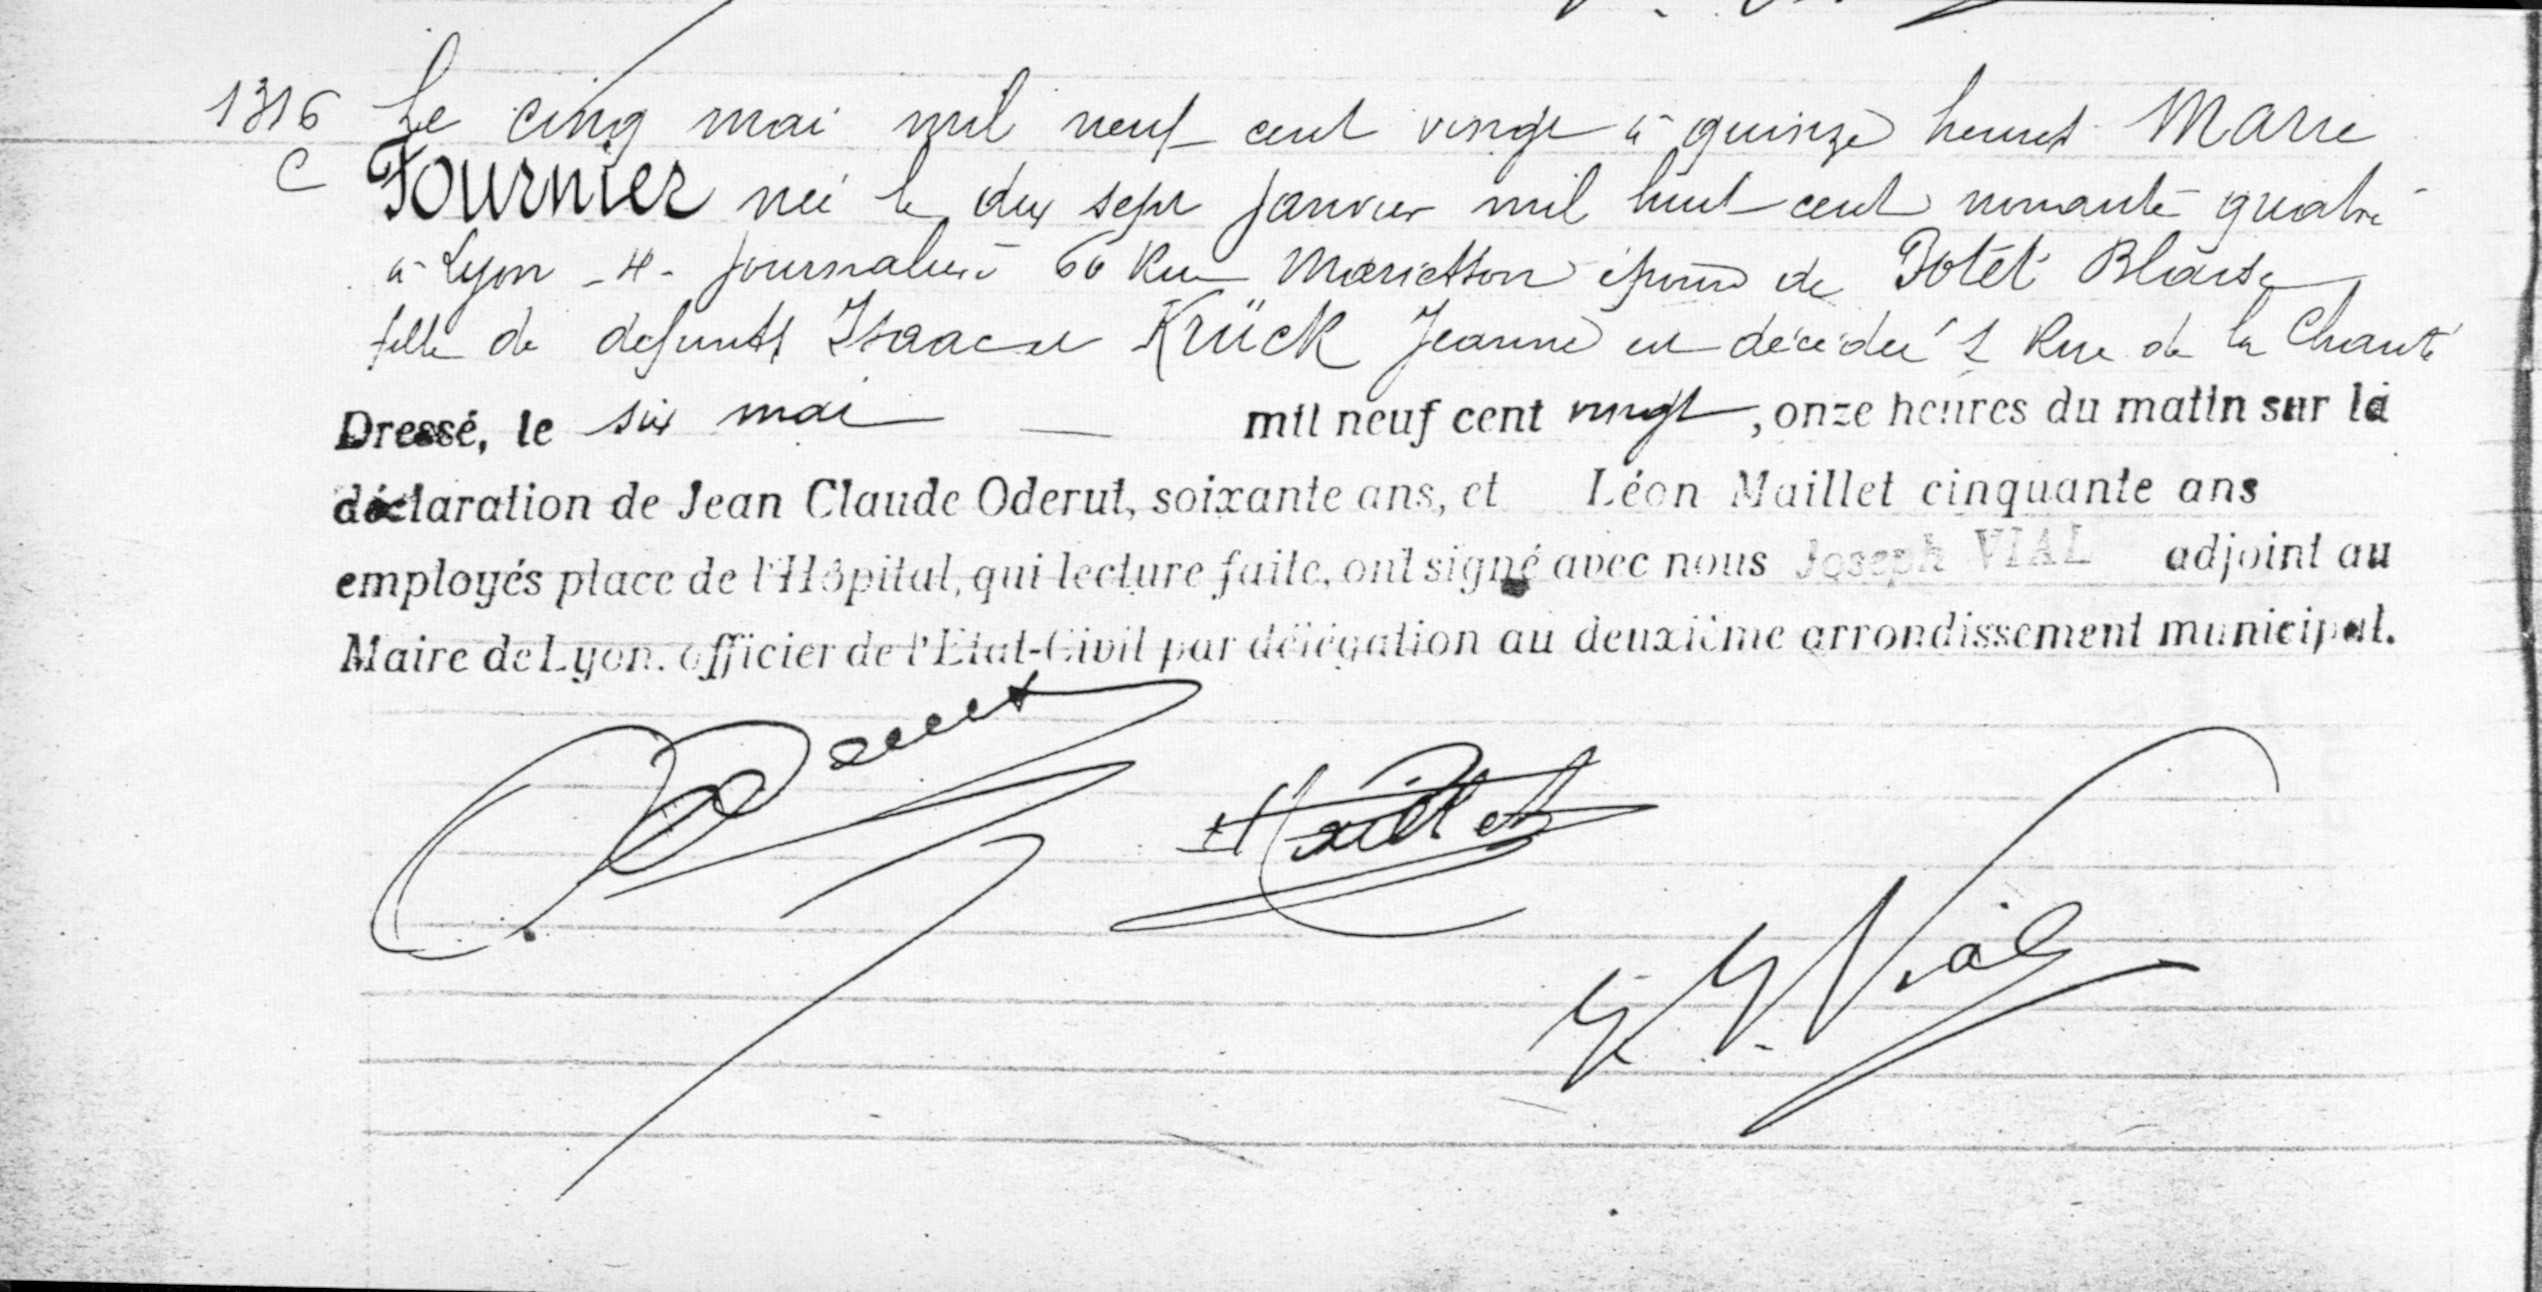 1316 Le cinq mai mil neuf cent vingt à quinze heures Marie
C Fournier née le dix sept janvier mil huit cent nonante quatre
à Lyon -4- journalière 66 Rue Marietton épouse de Potet Blaise
fille de defunts Isaac et Krück Jeanne est décédée 1 Rue de la Charité
Dressé, le six mai mil neuf cent vingt, onze heures du matin sur la
déclaration de Jean Claude Oderut, soixante ans, et Léon Maillet cinquante ans
employés place de l'Hôpital, qui lecture faite, ont signé avec nous Joseph VIAL adjoint au
Maire de Lyon. officier de l'Etat-Civil par délégation au deuxième arrondissement municipal.
Oderut
Maillet
J. Vial